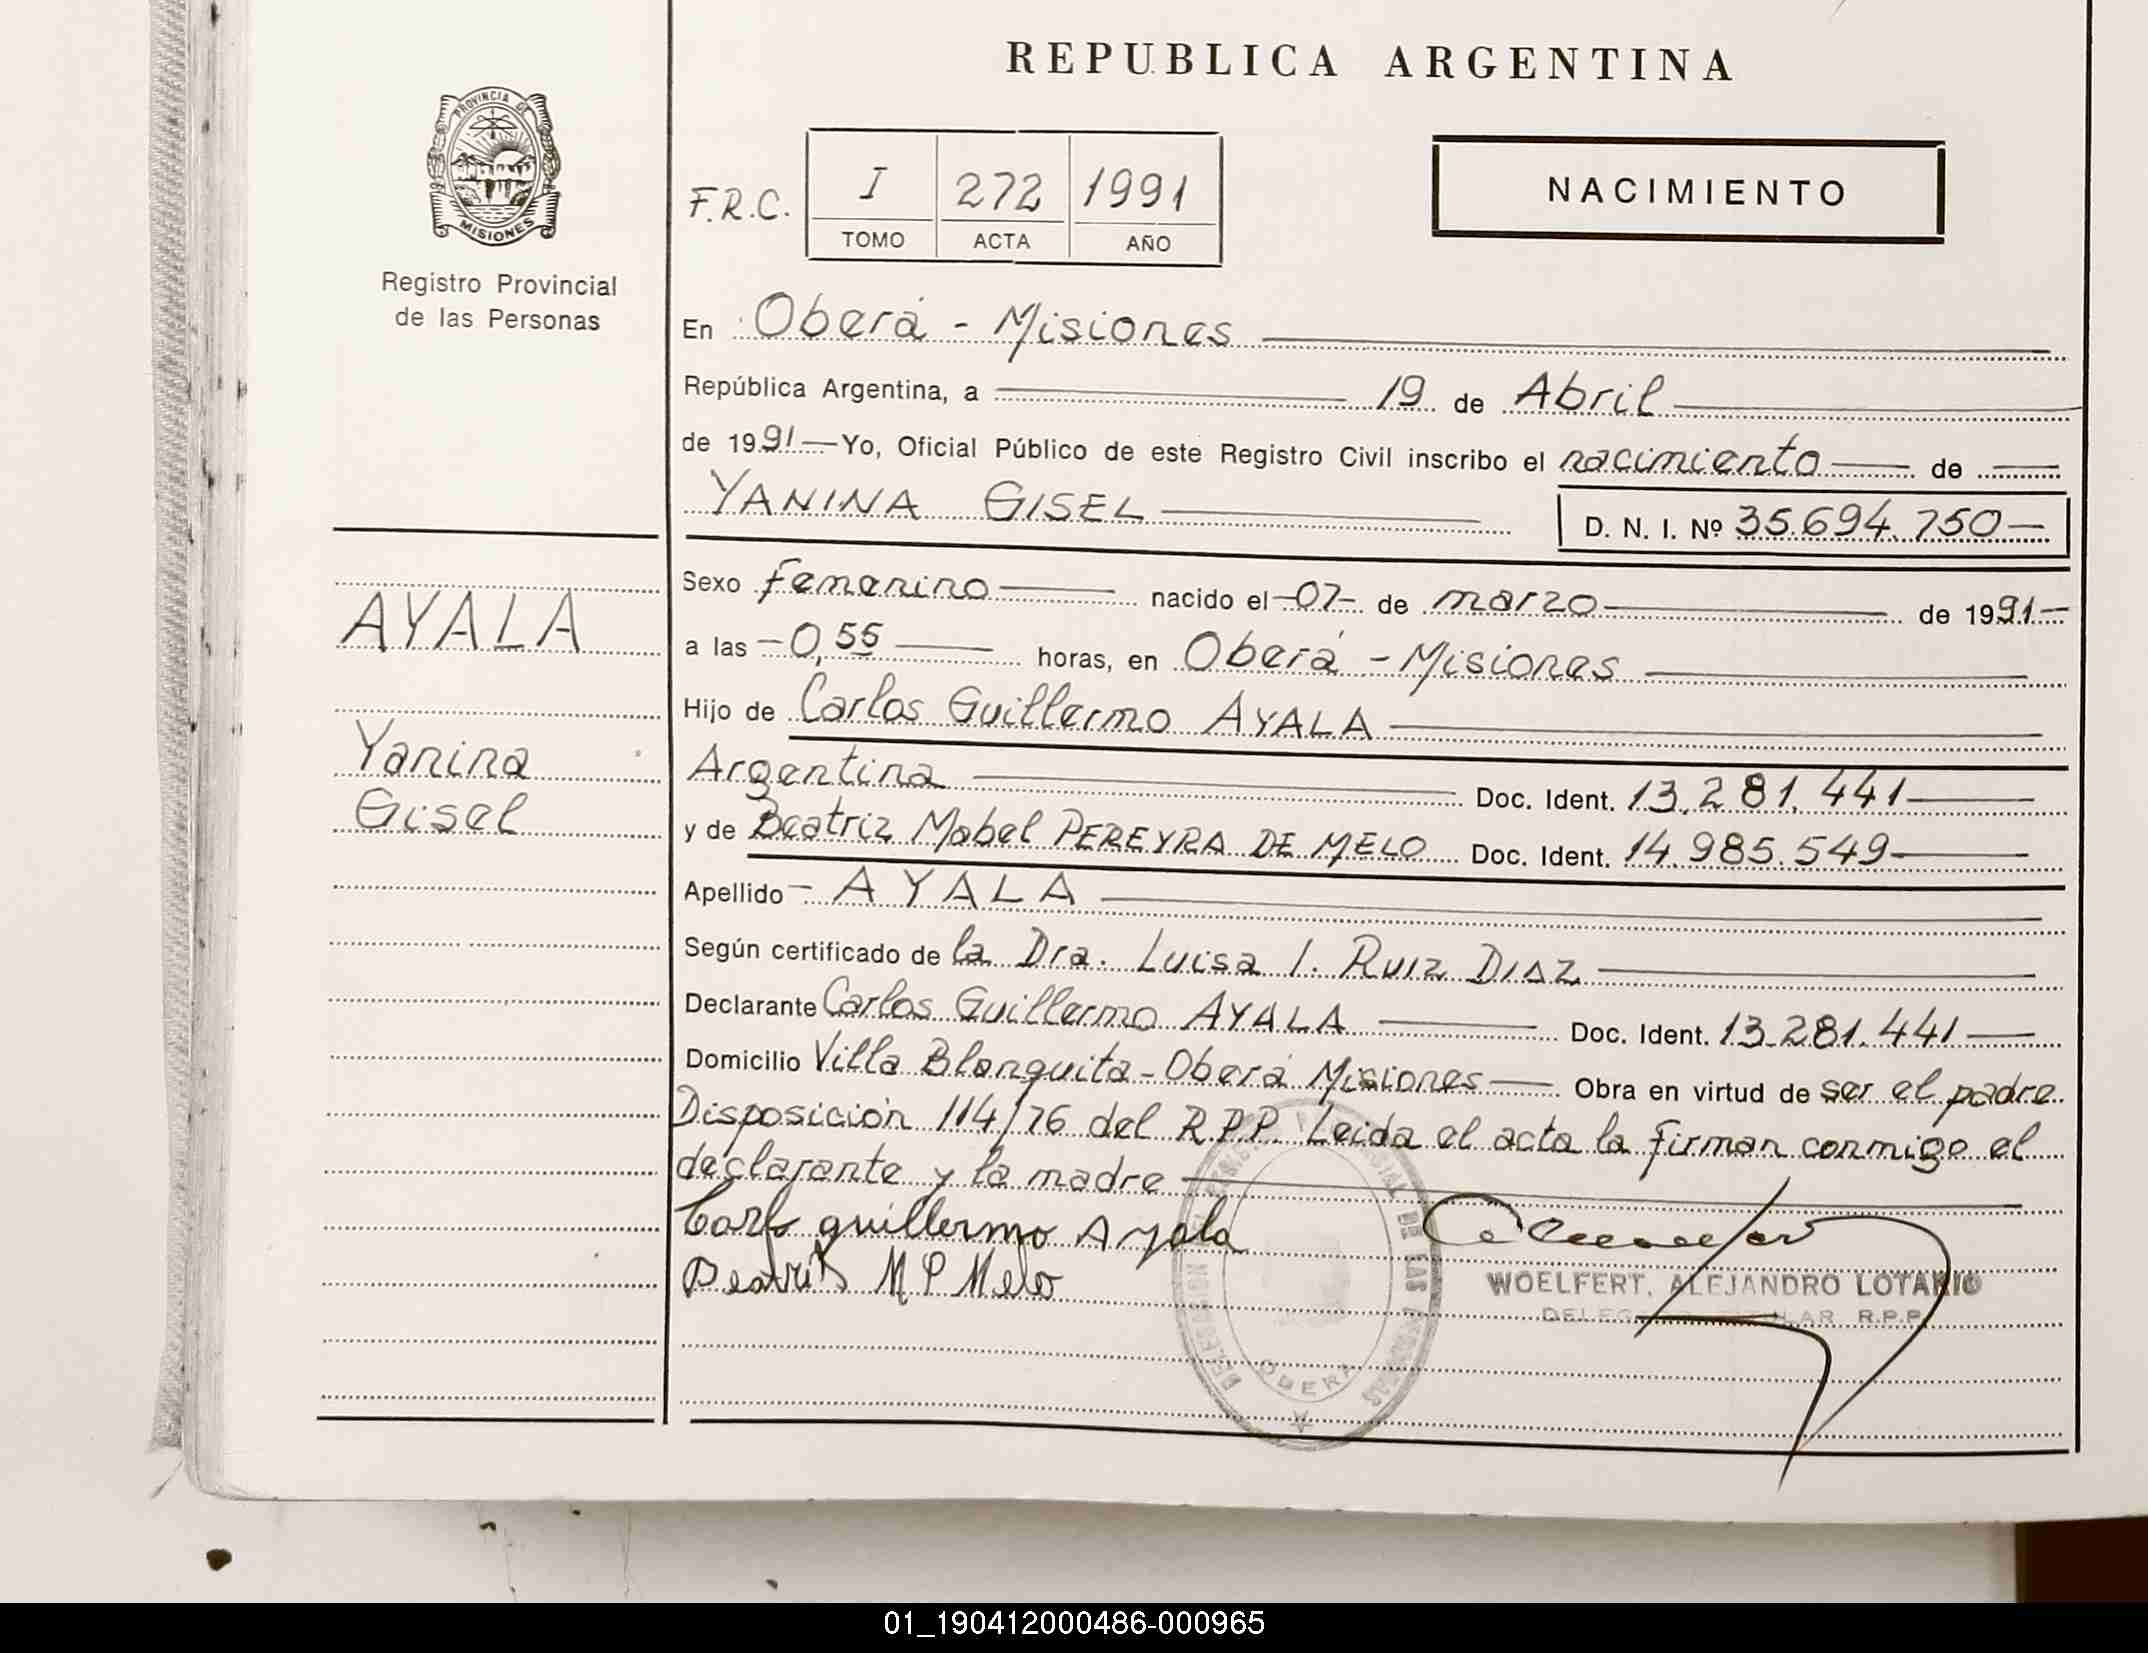 REPUBLICA ARGENTINA
PROVINCIA DE
MISIONES
Registro Provincial
de las Personas
F.R.C.
I 272 1991
TOMO ACTA AÑO
NACIMIENTO
En Oberá - Misiones
República Argentina, a 19 de Abril
de 1991 Yo, Oficial Público de este Registro Civil inscribo el nacimiento de
YANINA GISEL D. N. I. Nº 35.694.750
AYALA
Yanina
Gisel
Sexo femenino nacido el 07 de marzo de 1991
a las 0,55 horas, en Oberá - Misiones
Hijo de Carlos Guillermo AYALA
Argentina Doc. Ident. 13.281.441
y de Beatriz Mabel PEREYRA DE MELO Doc. Ident. 14.985.549
Apellido AYALA
Según certificado de la Dra. Luisa I. RUIZ DIAZ
Declarante Carlos Guillermo AYALA Doc. Ident. 13.281.441
Domicilio Villa Blanquita - Oberá Misiones Obra en virtud de ser el padre
Disposición 114/76 del R.P.P. Leida el acta la firman conmigo el
declarante y la madre
Carlos guillermo Ayala
Beatris M P Melo
WOELFERT, ALEJANDRO LOTARIO
R.P.P.
DELEGACION
DE LAS
OBERA
01_190412000486-000965